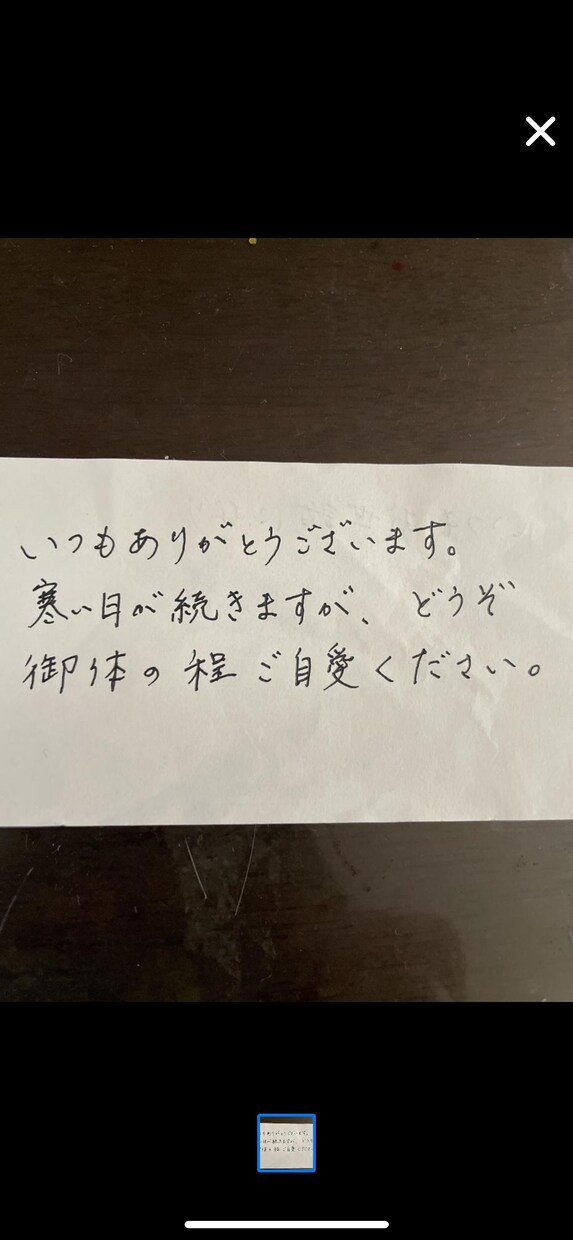 いつもありがとうございます。
寒い日が続きますが、どうぞ
御体の程ご自愛ください。